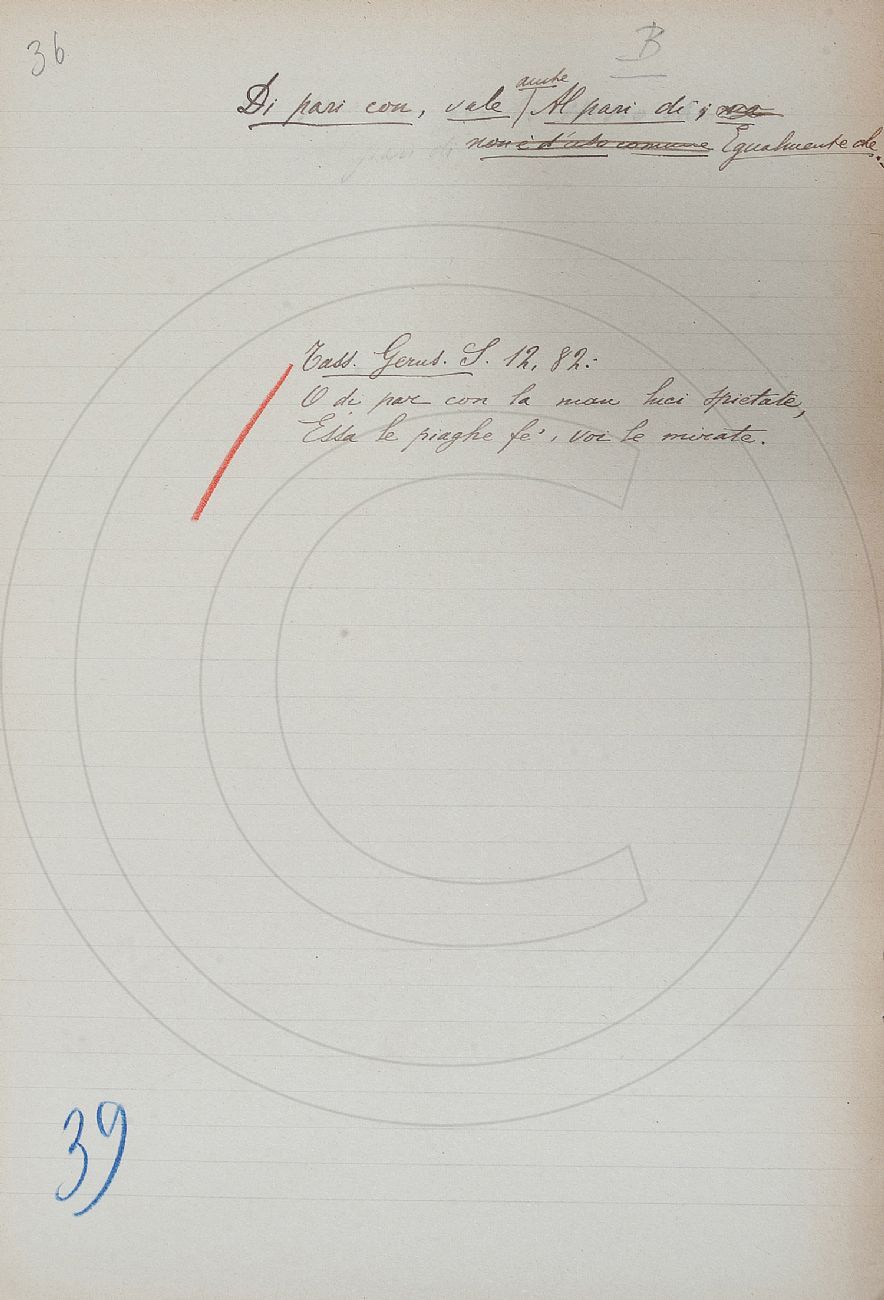 36
B
anche
Di pari con, vale Al pari di; ma
non è d'uso comune Egualmente che.
Tass. Gerus. S. 12, 82:
O di par con la man luci spietate,
Essa le piaghe fe', voi le mirate.
39